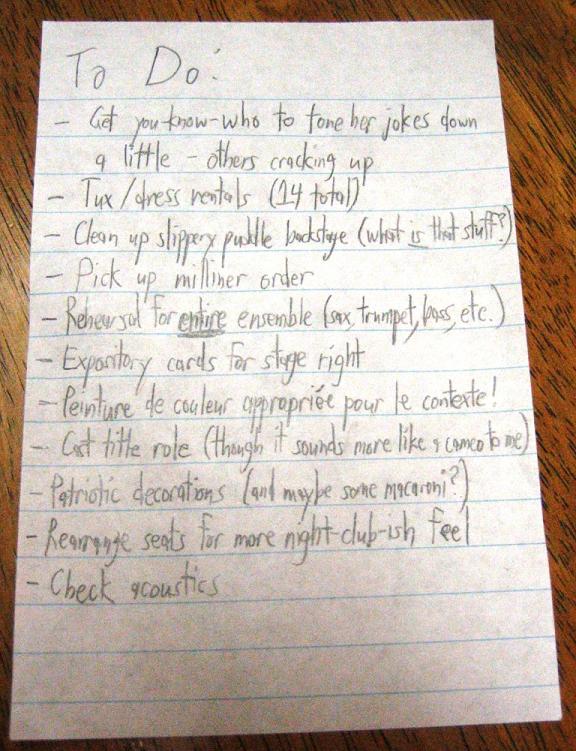 To Do:
- Get you-know-who to tone her jokes down
a little - others cracking up
- Tux/dress rentals (14 total)
- Clean up slippery puddle backstage (what is that stuff?)
- Pick up milliner order
- Rehearsal for entire ensemble (sax, trumpet, bass, etc.)
- Expository cards for stage right
- Peinture de couleur appropriée pour le contexte!
- Cast title role (though it sounds more like a cameo to me)
- Patriotic decorations (and maybe some macaroni?)
- Rearrange seats for more night-club-ish feel
- Check acoustics